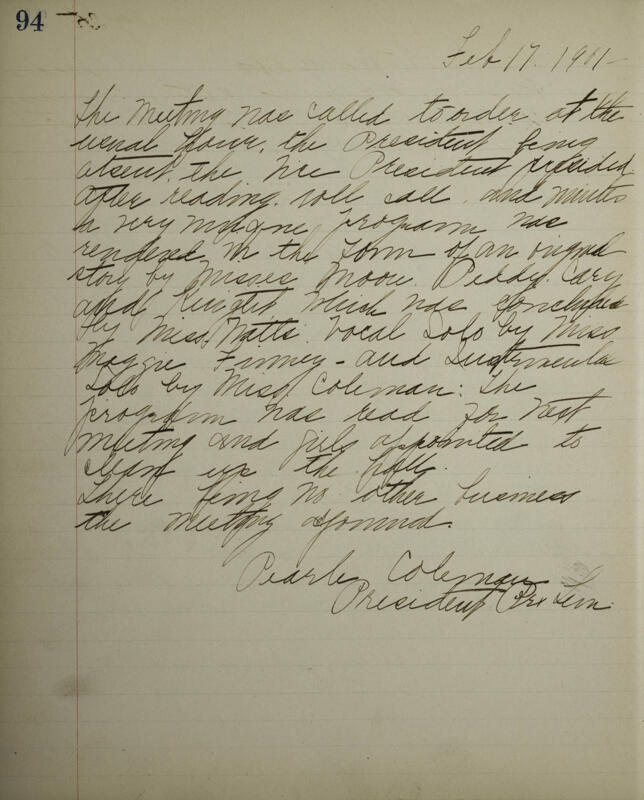 94
Feb 17. 1911-
The meeting was called to order at the
usual hour, the President being
absent the Vice President presided
after reading roll call and minutes
a very unique program was
rendered in the form of an original
story by Misses Moore Peddy Cary
and Knight which was concluded
by Miss Watts. Vocal Solo by Miss
Maggie Finney - and Instrumental
Solo by Miss Coleman: The
program was read for next
meeting and girls appointed to
clean up the hall.
There being no other business
the meeting
Pearle Coleman
President Pro Tem.